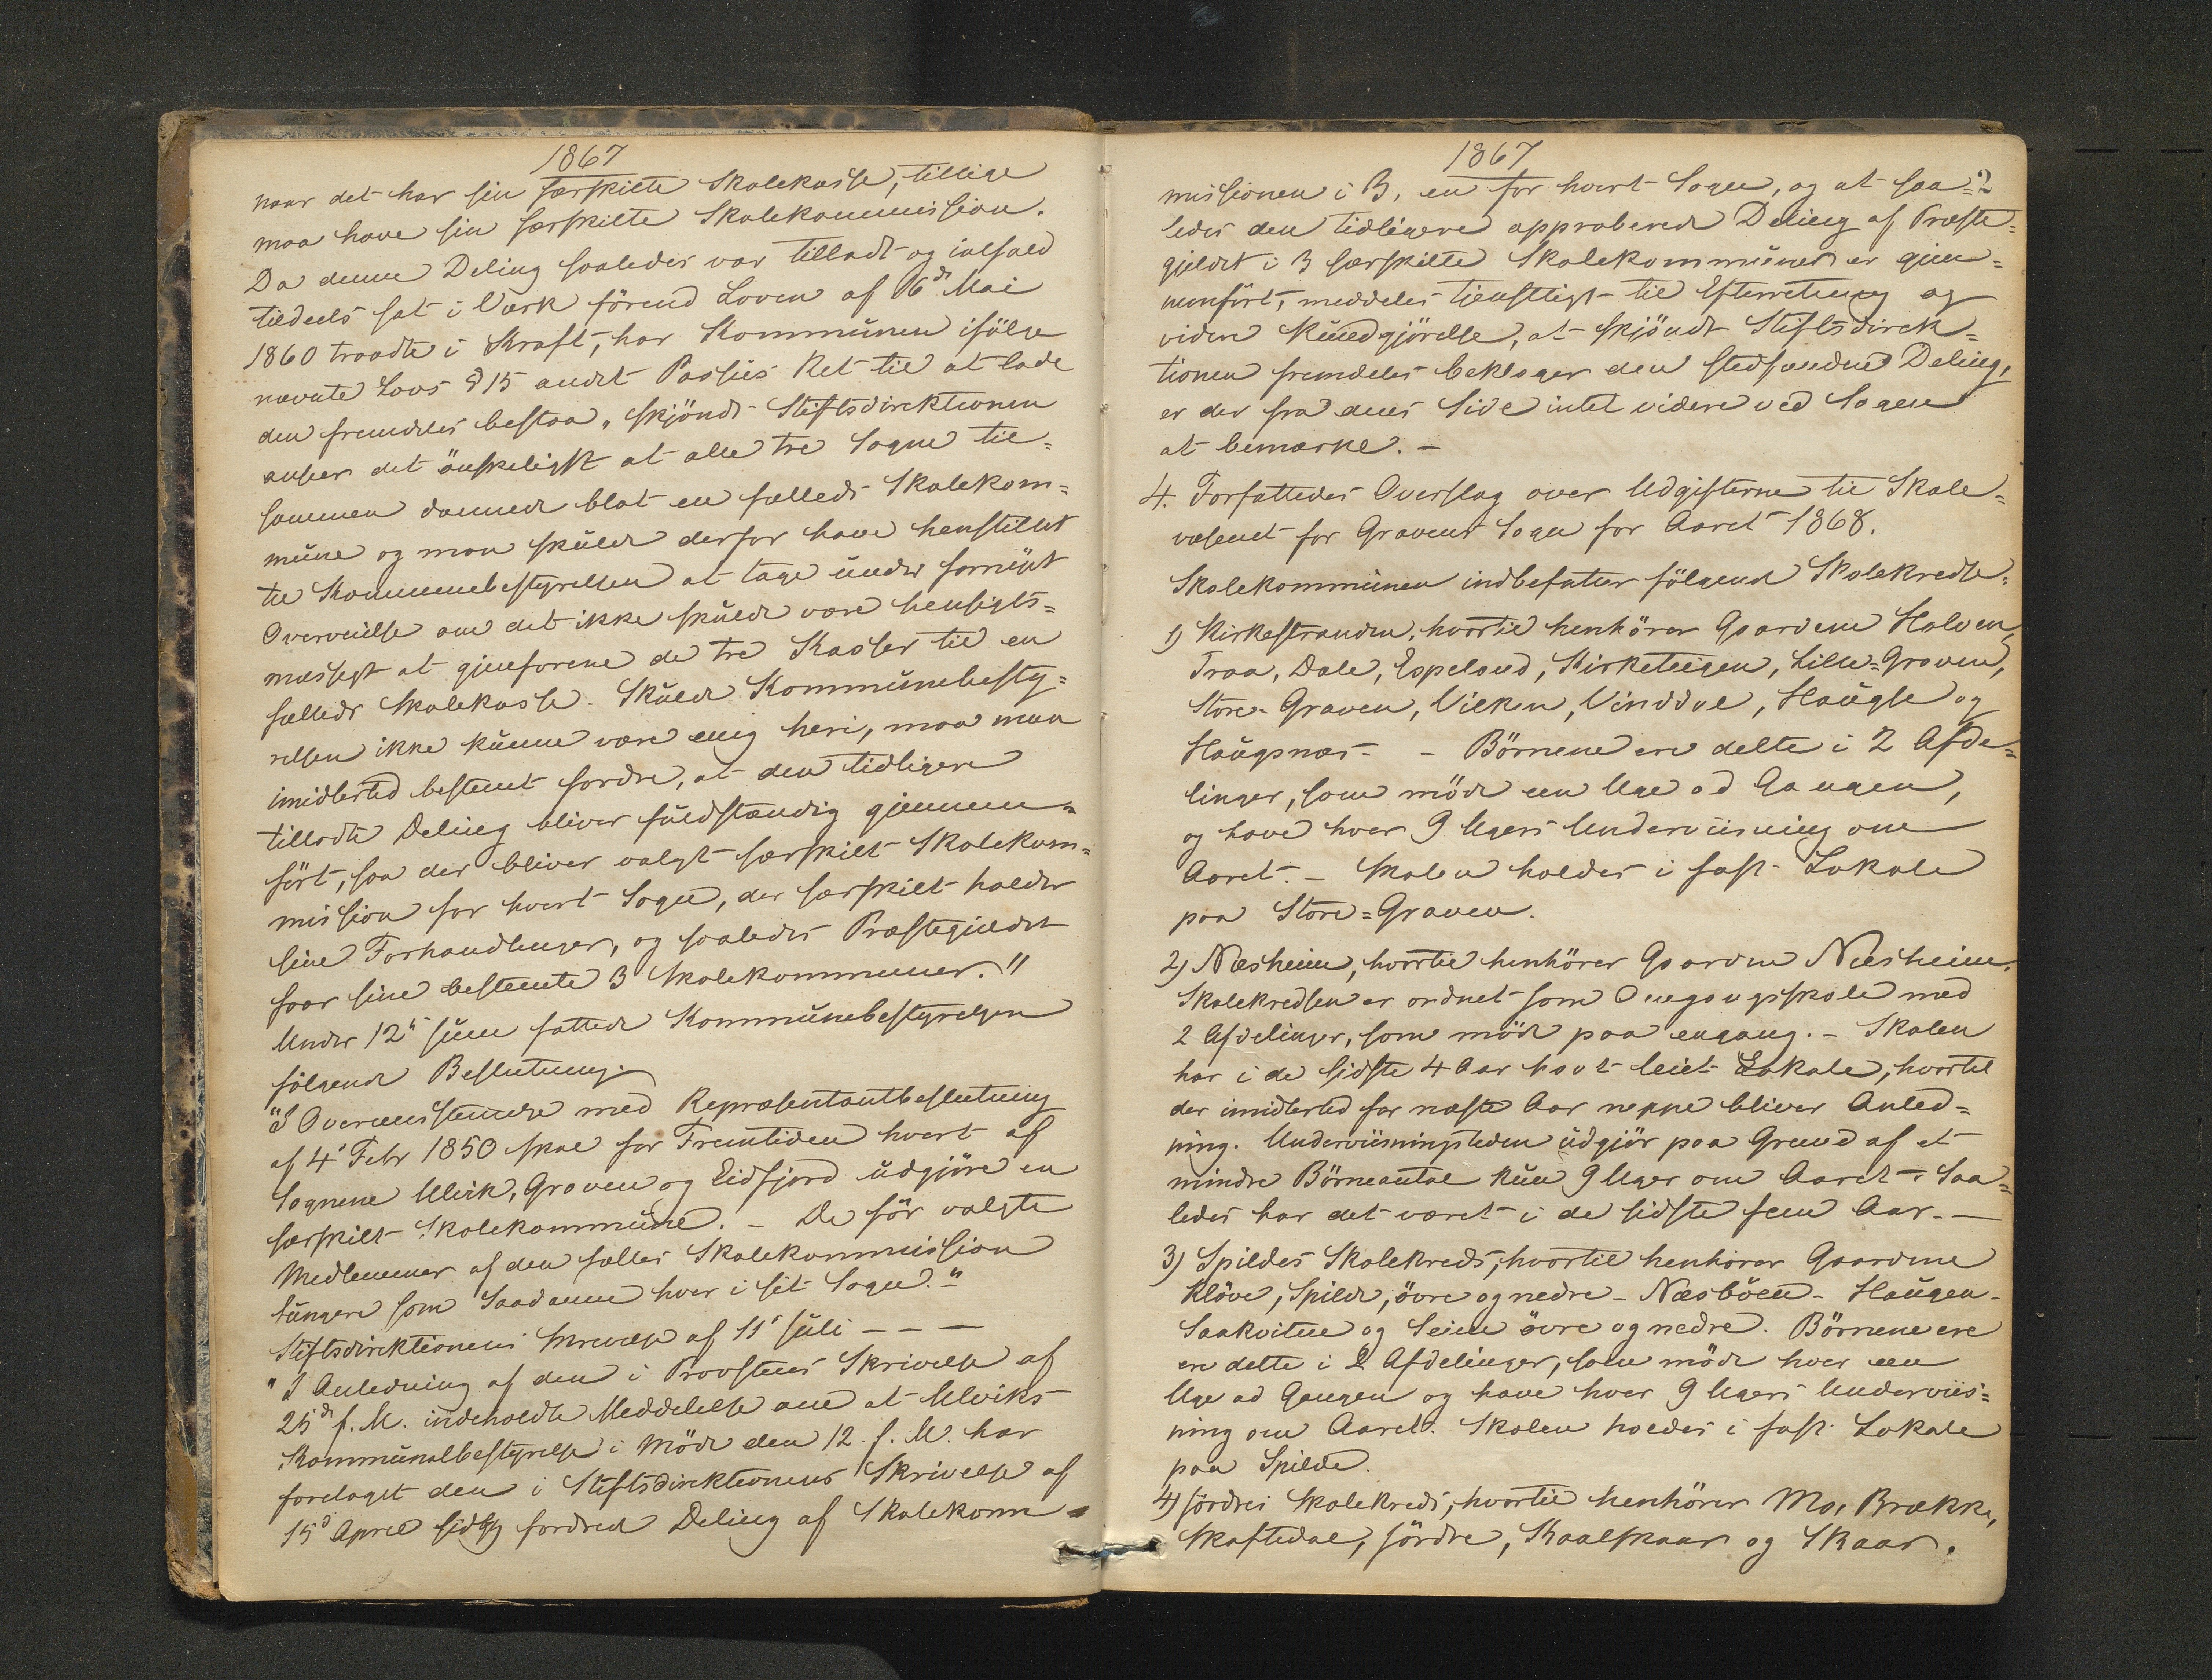 1867
naar det har sin særskilte Skolekasse, tillige
maa have sin særskilte Skolekommission.
Da denne Deling saaledes var tilladt og ialfald
tildeels sat i Værk förend Loven af 16de Mai
1860 traadte i Kraft, har Kommunen ifölge
nævnte Lovs § 15 andet Passus Ret til at lade
den fremdeles bestaa, skjöndt Stiftsdirektionen
anseer det önskeligst at alle tre Sogne til=
sammen dannede blot en fælleds Skolekom=
mune og man skulde derfor have henstillet
til Kommunebestyrelsen at tage under fornyet
Overveielse om det ikke skulde være hensigts=
mæssigt at gjenforene de tre Kasser til en
fælleds Skolekasse. Skulde Kommunebesty=
relsen ikke kunne være enig heri, maa man
imidlertid bestemt fordre, at den tidligere
tilladte Deling bliver fuldstændig gjennem=
fört, saa der bliver valgt særskilt Skolekom=
mission for hvert Sogn, der særskilt holder
sine Forhandlinger, og saaledes Præstegjeldet
faar sine bestemte 3 Skolekommuner."
Under 12te Juni fattede Kommunebestyrelsen
fölgende Beslutning.
"I Overensstemmelse med Repræsentantbeslutning
af 4de Febr 1850 skal for Fremtiden hvert af
Sognene Ulvik, Graven og Eidfjord udgjöre en
særskilt Skolekommune. - De för valgte
Medlemmer af den fælles Skolekommission
fungere som Saadanne hver i sit Sogn."
Stiftsdirektionens Skrivelse af 11te Juli - - -
"I Anledning af den i Provstens Skrivelse af
25de f. M. indeholdte Meddelelse om at Ulviks
Kommunalbestyrelse i Möde den 12 f. M. har
foretaget den i Stiftsdirektionens Skrivelse af
15de April sidstl. fordrede Deling af Skolekom=
1867
2
missionen i 3, en for hvert Sogn, og at saa=
ledes den tidligere approberede Deling af Præste=
gjeldet i 3 særskilte Skolekommuner er gjen=
nemfört, meddeles tjenstligst til Efterretning og
videre Kundgjörelse, at skjöndt Stiftsdirek=
tionen fremdeles beklager den stedfundne Deling,
er der fra dens Side intet videre ved Sagen
at bemærke. -
4. Forfattedes Overslag over Udgifterne til Skole=
væsenet for Gravens Sogn for Aaret 1868.
Skolekommunen indbefatter fölgende Skolekredse:
1) Kirkestranden, hvortil henhörer Gaardene Halven,
Traa, Dale, Espeland, Kirketeigen, Lille-Graven,
Store-Graven, Vilken, Vinddal, Haugse og
Haugsnæs. - Börnene ere delte i 2 Afde=
linger, som möde een Uge ad Gangen,
og have hver 9 Ugers Underviisning om
Aaret. - Skolen holdes i fast Lokale
paa Store=Graven.
2) Næsheim, hvortil henhörer Gaarden Næsheim.
Skolekredsen er ordnet som Omgangsskole med
2 Afdelinger, som möde paa engang. - Skolen
har i de sidste 4 Aar havt leiet Lokale, hvortil
der imidlertid for næste Aar neppe bliver Anled=
ning. Underviisningstiden udgjör paa Grund af et
mindre Börneantal kun 9 Uger om Aaret. Saa=
ledes har det været i de sidste fem Aar. -
3) Spildes Skolekreds, hvortil henhörer Gaardene
Klöve, Spilde, övre og nedre - Næsböen - Haugen -
Saakvitne og Seim övre og nedre. Börnene ere
ere delte i 2 Afdelinger, som möde hver een
Uge ad Gangen og have hver 9 Ugers Underviis=
ning om Aaret. Skolen holdes i fast Lokale
paa Spilde.
4) Jördres Skolekreds, hvortil henhörer Mo, Brække,
Skaftedal, Jördre, Kaalskaar og Skaar.